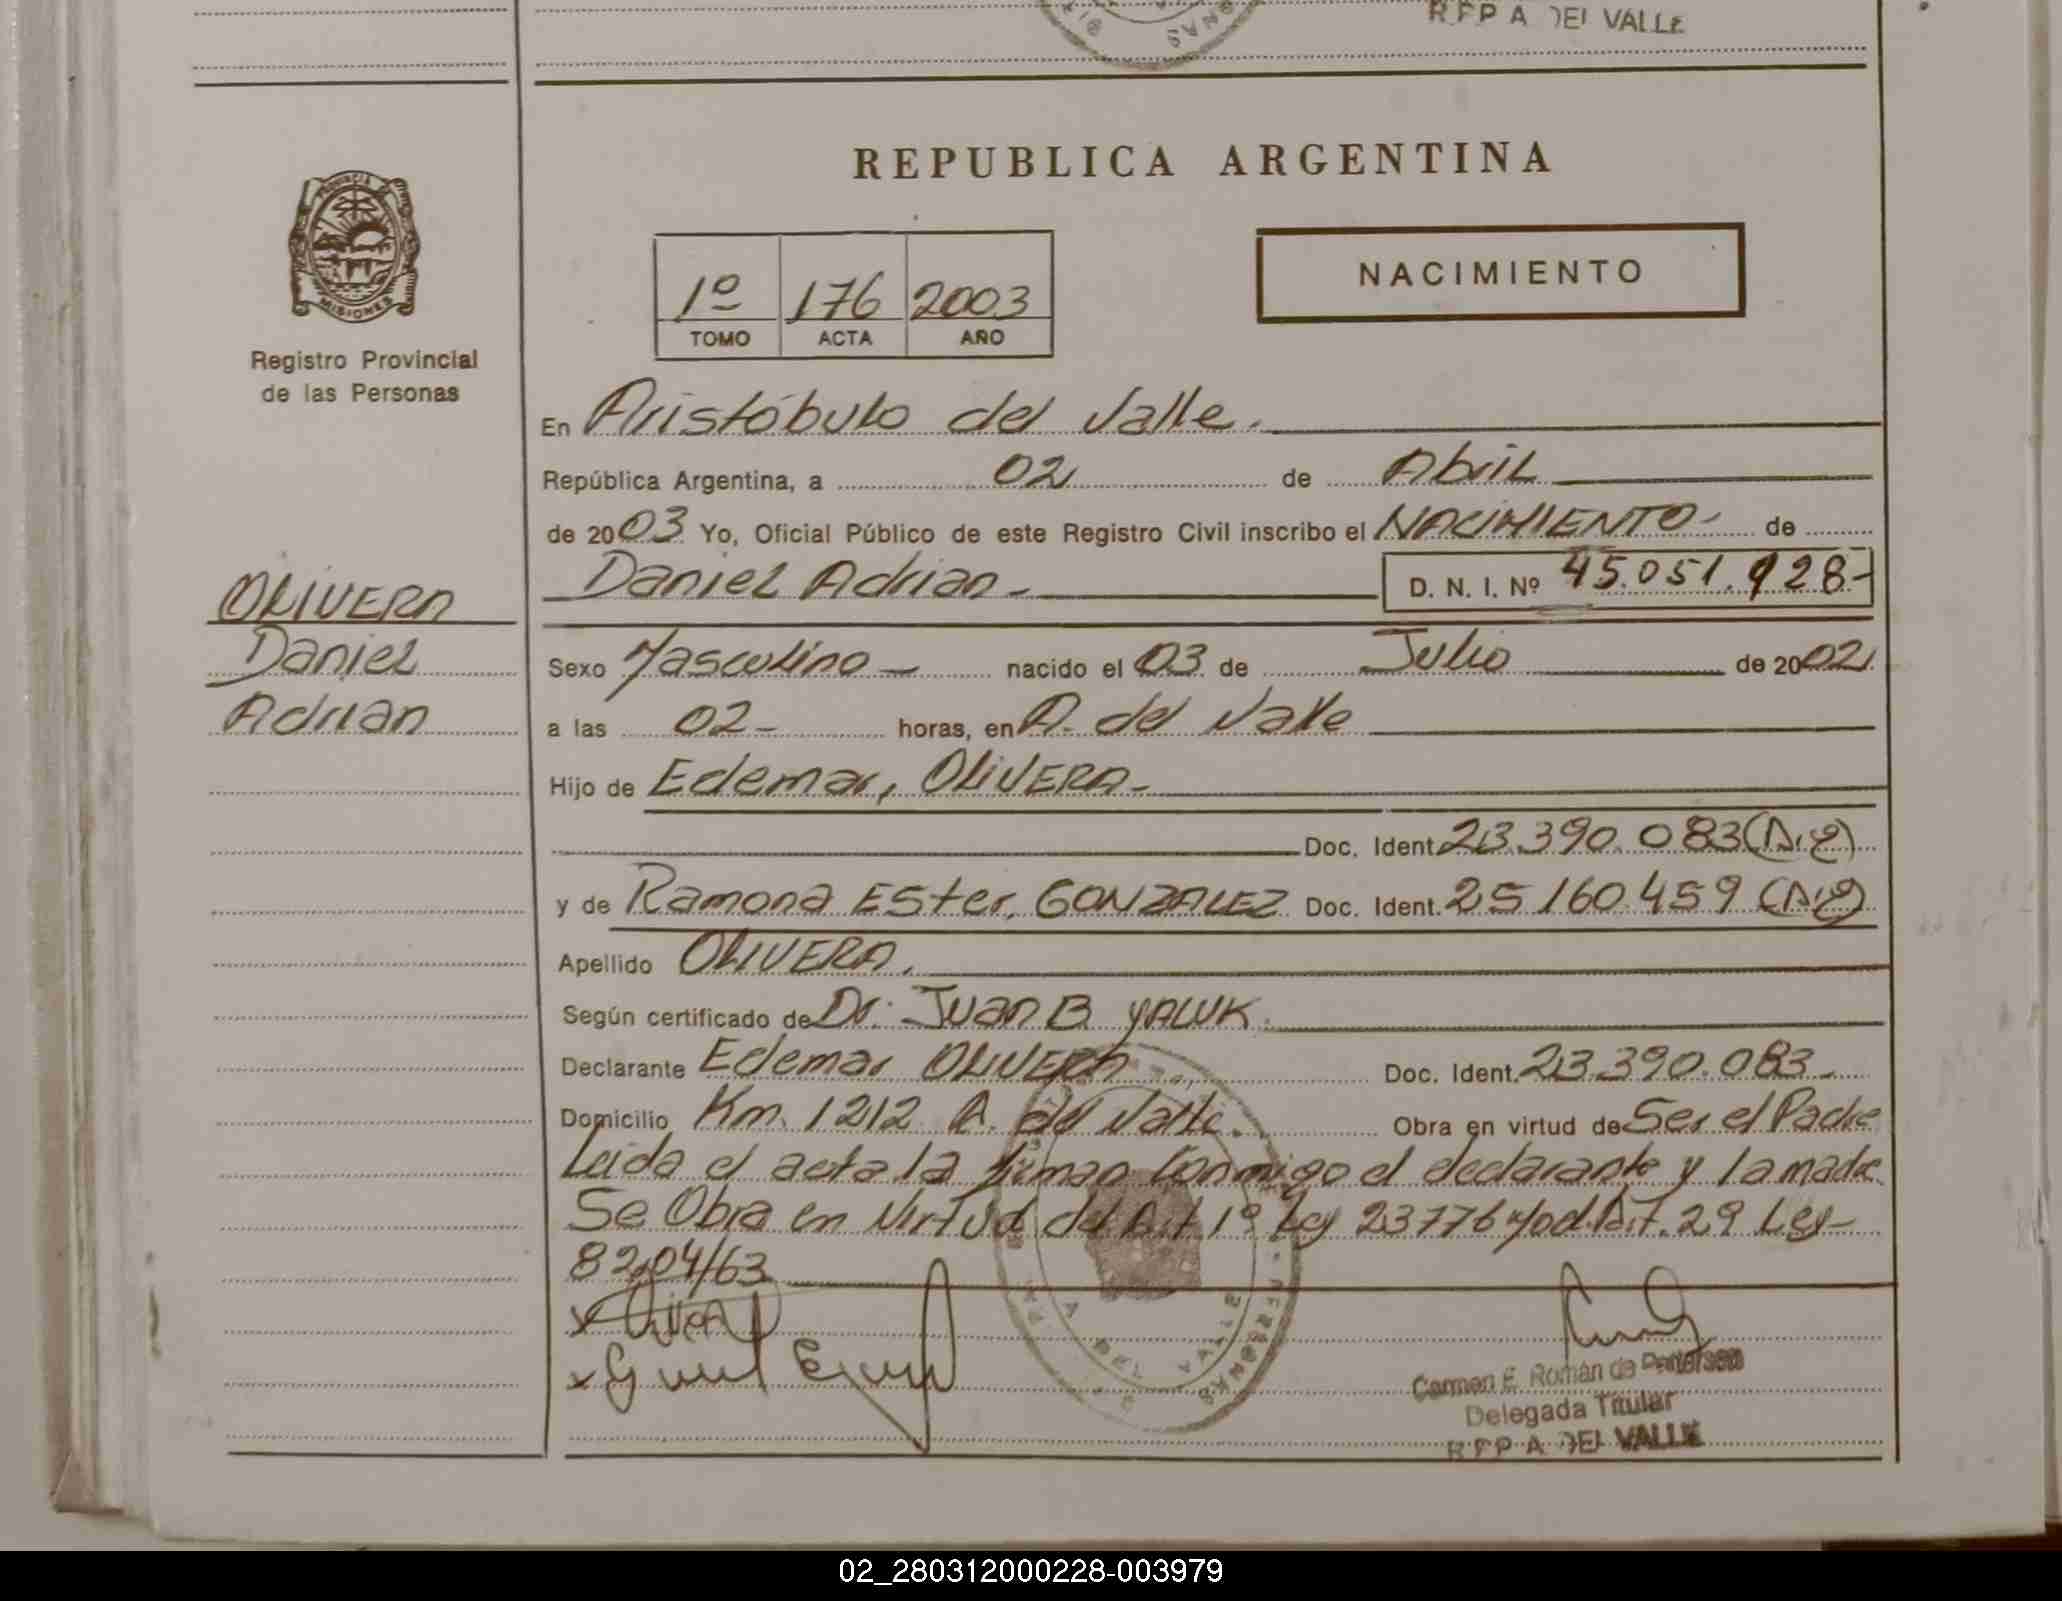 R.F.P A DEL VALLE
REPUBLICA ARGENTINA
PROVINCIA DE
MISIONES
Registro Provincial
de las Personas
1º 176 2003
TOMO ACTA AÑO
NACIMIENTO
En Aristóbulo del Valle.
República Argentina, a 02 de Abril
de 2003 Yo, Oficial Público de este Registro Civil inscribo el NACIMIENTO- de
Daniel Adrian- D. N. I. Nº 45.051.928-
OLIVERA
Daniel
Adrian
Sexo Masculino- nacido el 03 de Julio de 2002
a las 02- horas, en A. del Valle
Hijo de Edemar, OLIVERA-
Doc. Ident. 23.390.083 (Arg)
y de Ramona Ester, GONZALEZ Doc. Ident. 25160.459 (Arg)
Apellido OLIVERA.
Según certificado de Dr. Juan B YALUK.
Declarante Edemar OLIVERA Doc. Ident. 23.390.083-
Domicilio Km. 1212 A. del Valle. Obra en virtud de Ser el Padre
Leida el acta la firman Conmigo el declarante y la madre
Se Obra en Virtud del Art 1º Ley 23776 Mod. Art. 29 Ley-
8204/63
Carmen E. Román de
Delegada Titular
R.F.P A DEL VALLE
02_280312000228-003979